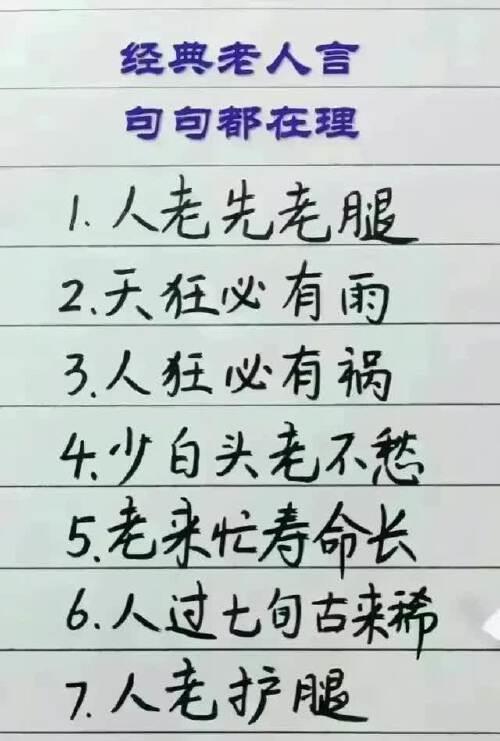 经典老人言
句句都在理
1.人老先老腿
2.天狂必有雨
3.人狂必有祸
4.少白头老不愁
5.老来忙寿命长
6.人过七旬古来稀
7.人老护腿